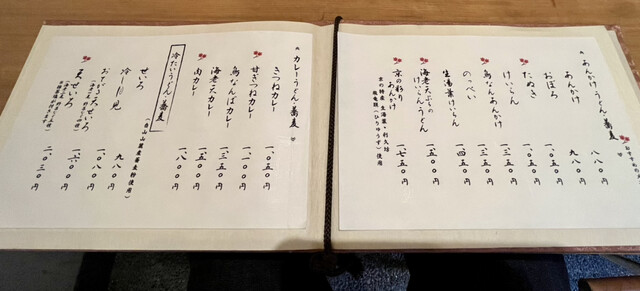 あんかけうどん・蕎麦
あんかけ 八八〇円
おぼろ 九八〇円
たぬき 一、〇五〇円
けいらん 一、〇五〇円
鳥なんあんかけ 一、三五〇円
のっぺい 一、四五〇円
生湯葉けいらん
海老天ぷらの
けいらんうどん 一、五〇〇円
京の彩り
あんかけ 一、七五〇円
京の特産 生湯葉・利久坊
飛竜頭(ひりゅうず)使用
カレーうどん・蕎麦
きつねカレー 一、〇五〇円
甘ぎつねカレー 一、一〇〇円
鳥なんばカレー 一、三五〇円
海老天カレー 一、五〇〇円
肉カレー 一、八〇〇円
冷たいうどん・蕎麦
せいろ 九八〇円
冷し月見 一、〇八〇円
おろし天せいろ 一、六〇〇円
天せいろ 二、〇三〇円